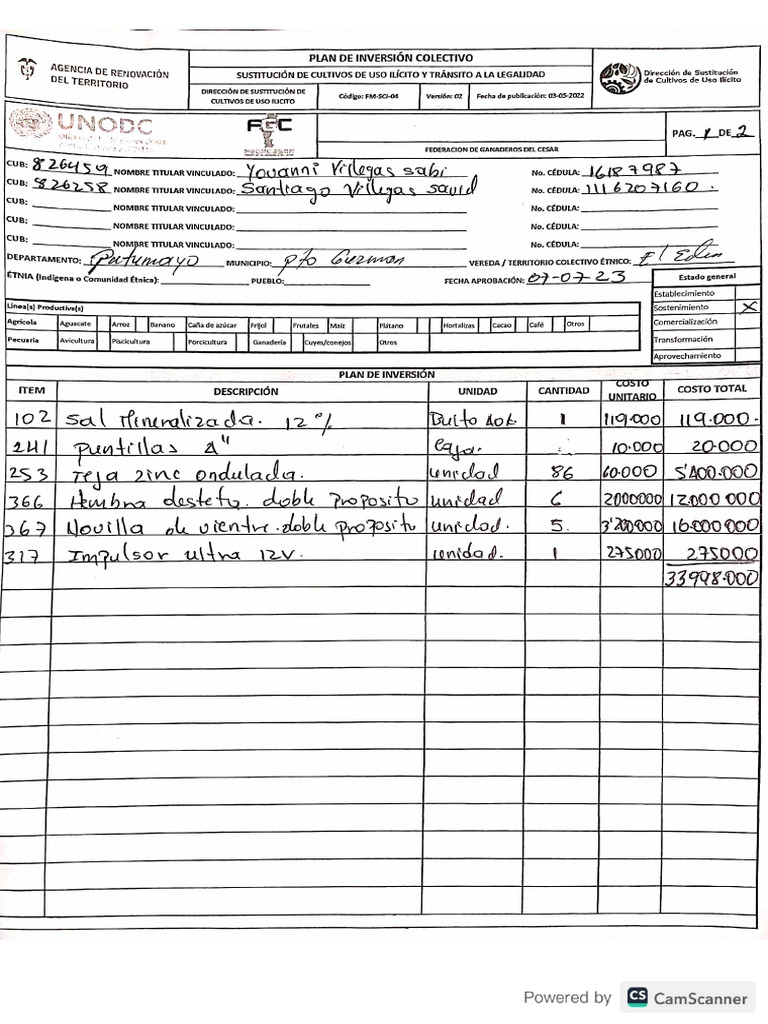 AGENCIA DE RENOVACIÓN
DEL TERRITORIO
PLAN DE INVERSIÓN COLECTIVO
SUSTITUCIÓN DE CULTIVOS DE USO ILÍCITO Y TRÁNSITO A LA LEGALIDAD
DIRECCIÓN DE SUSTITUCIÓN DE
CULTIVOS DE USO ILICITO
Código: FM-SCI-04
Versión: 02
Fecha de publicación: 03-05-2022
Dirección de Sustitución
de Cultivos de Uso Ilícito
UNODC
FEDERACION DE GANADEROS DEL CESAR
PAG. 1 DE 2
CUB: 826459 NOMBRE TITULAR VINCULADO: Yovanni Villegas sabi No. CÉDULA: 16187987
CUB: 826258 NOMBRE TITULAR VINCULADO: Santiago Villegas savid No. CÉDULA: 1116207160.
CUB: NOMBRE TITULAR VINCULADO: No. CÉDULA:
CUB: NOMBRE TITULAR VINCULADO: No. CÉDULA:
CUB: NOMBRE TITULAR VINCULADO: No. CÉDULA:
DEPARTAMENTO: Putumayo MUNICIPIO: pto Guzman VEREDA / TERRITORIO COLECTIVO ÉTNICO: El Eden
ÉTNIA (Indigena o Comunidad Étnica): PUEBLO: FECHA APROBACIÓN: 07-07-23
Estado general
Establecimiento
Sostenimiento X
Comercialización
Transformación
Aprovechamiento
Linea(s) Productiva(s)
Agrícola Aguacate Arroz Banano Caña de azúcar Frijol Frutales Maíz Plátano Hortalizas Cacao Café Otros
Pecuaria Avicultura Piscicultura Porcicultura Ganadería Cuyes/conejos Otros
PLAN DE INVERSIÓN
ITEM DESCRIPCIÓN UNIDAD CANTIDAD COSTO UNITARIO COSTO TOTAL
102 Sal Mineralizada. 12% Bulto 40k. 1 119.000 119.000.
241 puntillas 4" Caja. 10.000 20.000
253 Teja zinc ondulada. unidad 86 60.000 5'400.000
366 Hembra desteta. doble proposito unidad 6 2000000 12.000 000
367 Novilla de vientre. doble proposito unidad. 5. 3'200000 16.000000
317 Impulsor ultra 12V. unidad. 1 275000 275000
33998.000
Powered by CS CamScanner